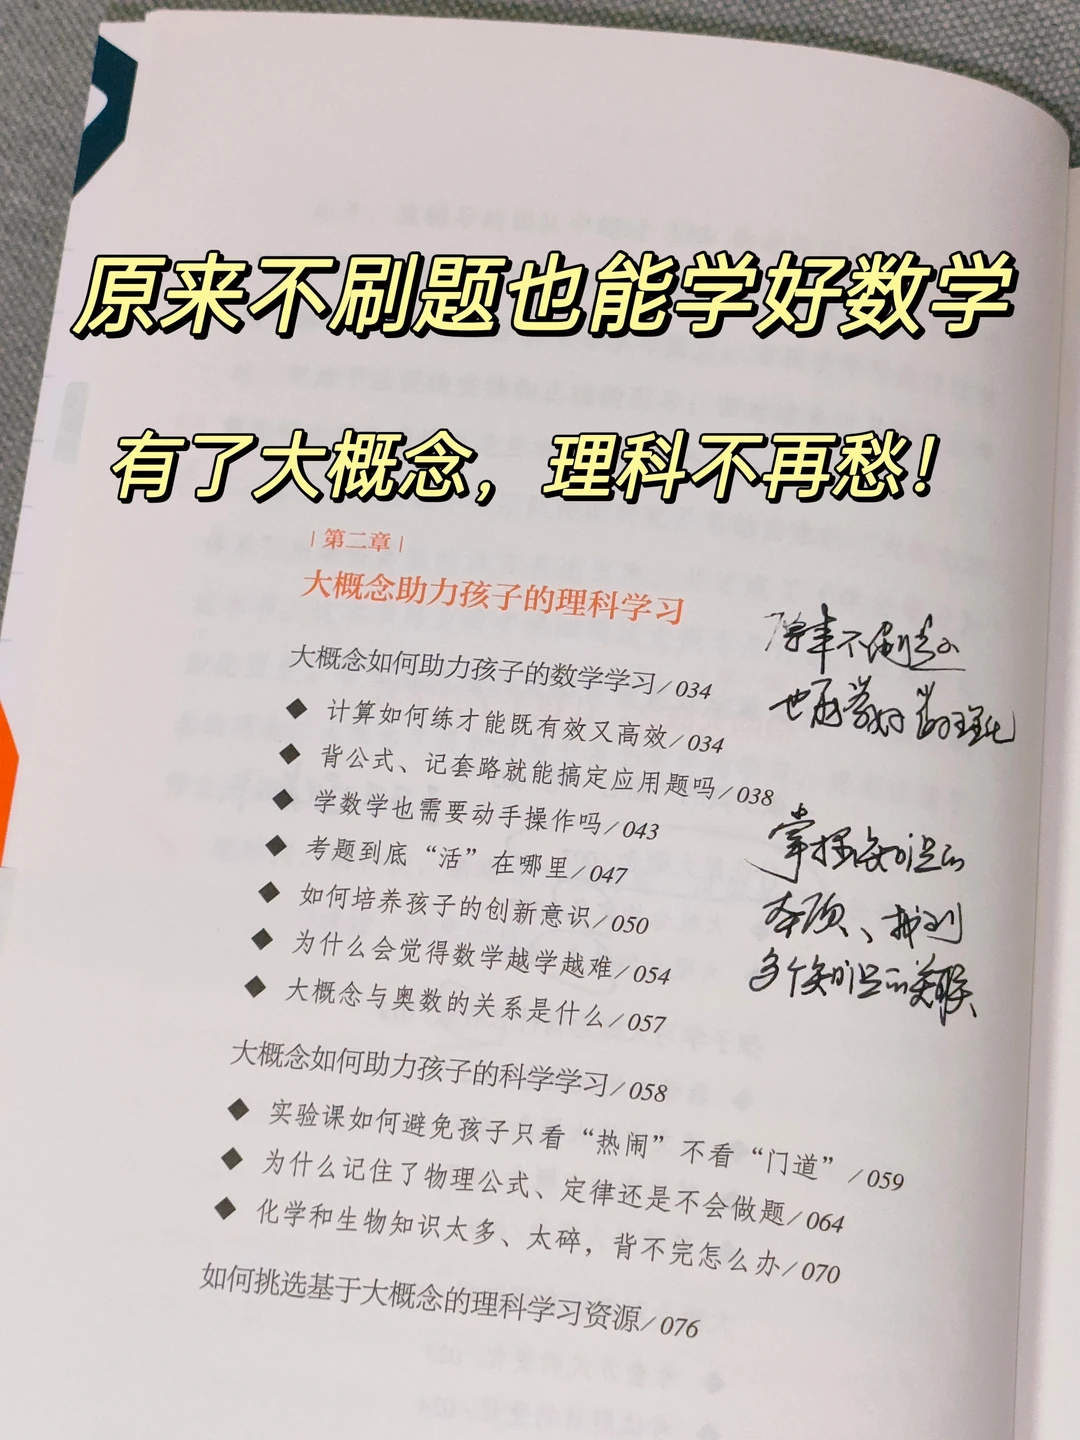 原来不刷题也能学好数学
有了大概念，理科不再愁！
|第二章|
大概念助力孩子的理科学习
大概念如何助力孩子的数学学习/034
◆ 计算如何练才能既有效又高效/034
◆ 背公式、记套路就能搞定应用题吗/038
◆ 学数学也需要动手操作吗/043
◆ 考题到底“活”在哪里/047
◆ 如何培养孩子的创新意识/050
◆ 为什么会觉得数学越学越难/054
◆ 大概念与奥数的关系是什么/057
大概念如何助力孩子的科学学习/058
◆ 实验课如何避免孩子只看“热闹”不看“门道”/059
◆ 为什么记住了物理公式、定律还是不会做题/064
◆ 化学和生物知识太多、太碎，背不完怎么办/070
如何挑选基于大概念的理科学习资源/076
原来不刷题
也能学好数理化
掌握知识的
本质、找到
多个知识的关联